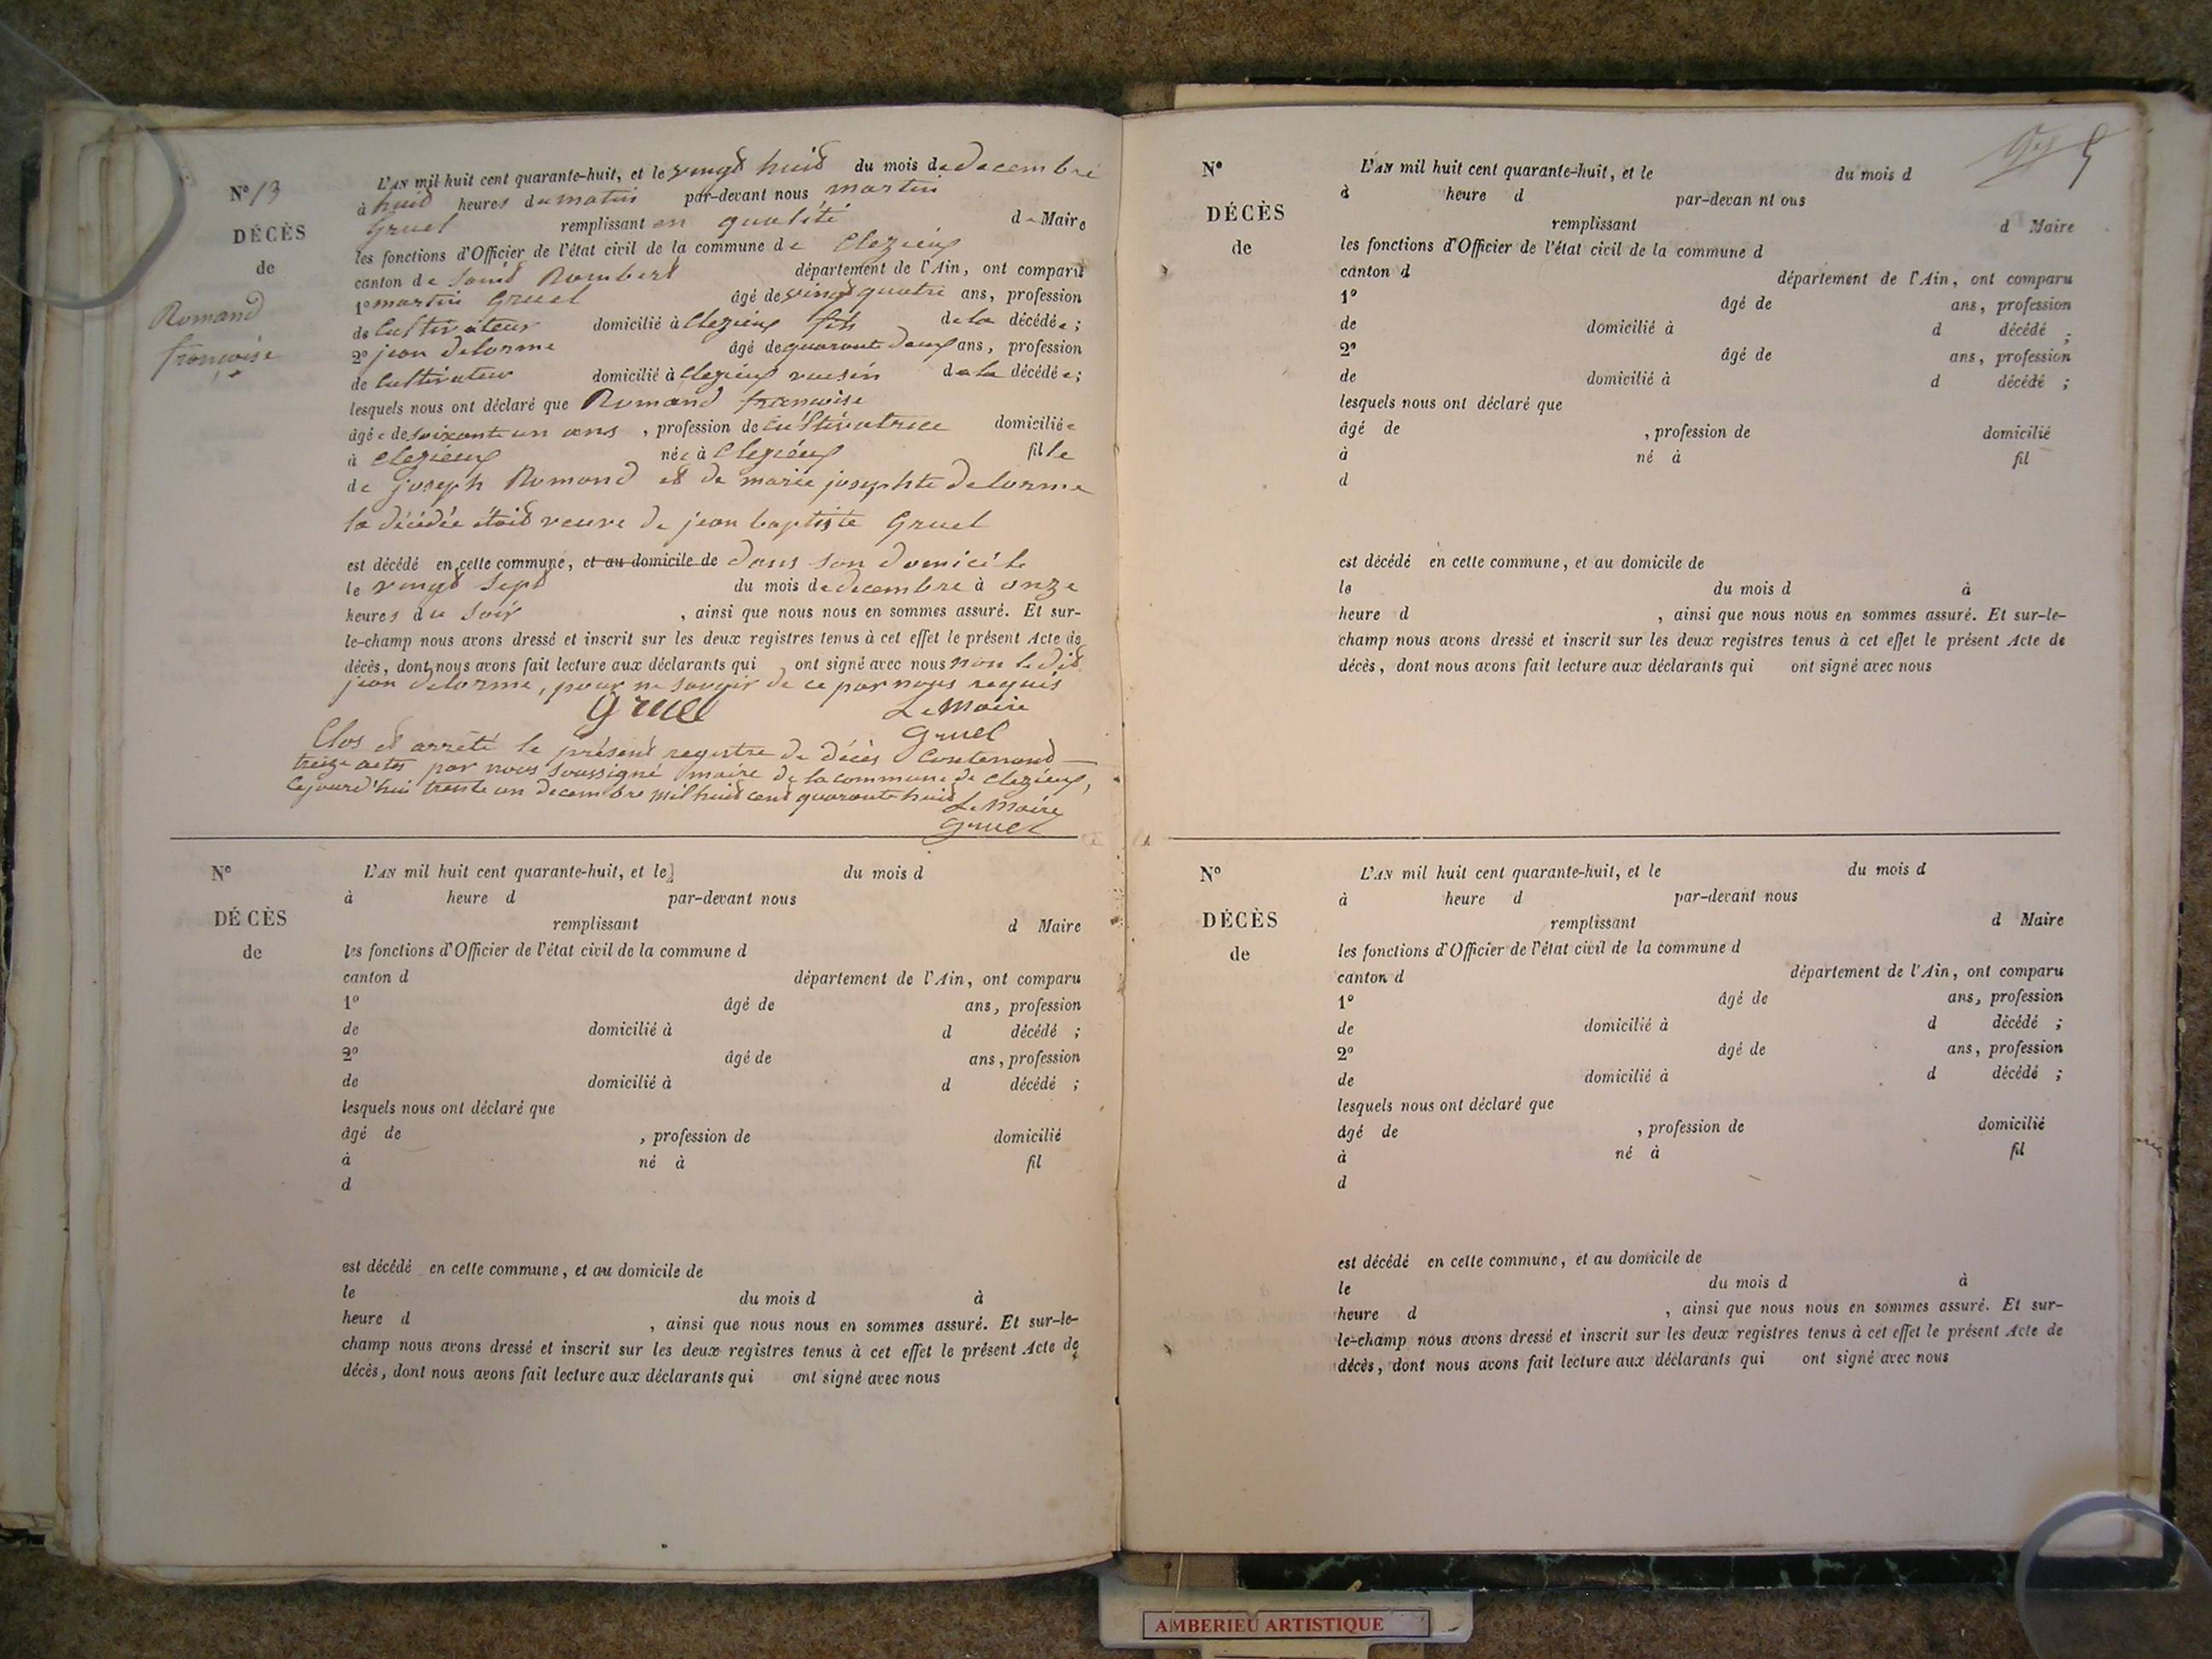 N° 13
DÉCÈS
de
Romand
françoise
L'AN mil huit cent quarante-huit, et le vingt huit du mois de decembre
à huit heures du matin par-devant nous martin
Gruel remplissant en qualité de Maire
les fonctions d'Officier de l'état civil de la commune de Clezieux
canton de Saint Rambert département de l'Ain, ont comparu
1° martin Gruel âgé de vingt quatre ans, profession
de Cultivateur domicilié à Clezieux fils de la décédée ;
2° jean delorme âgé de quarante deux ans, profession
de Cultivateur domicilié à Clezieux voisin de la décédée ;
lesquels nous ont déclaré que Romand françoise
âgée de soixante un ans , profession de cultivatrice domiciliée
à Clezieux née à Clezieux fille
de joseph Romand et de marie josephte delorme
la décédée étoit veuve de jean baptiste Gruel
est décédé en cette commune, et au domicile de dans son domicile
le vingt sept du mois de decembre à onze
heures du soir , ainsi que nous nous en sommes assuré. Et sur-
le-champ nous avons dressé et inscrit sur les deux registres tenus à cet effet le présent Acte de
décès, dont nous avons fait lecture aux déclarants qui ont signé avec nous non le dit
jean delorme, pour ne savoir de ce par nous requis
Gruel Le Maire
Gruel
Clos et arrêté le présent registre de décès Contenant
treize actes par nous soussigné maire de la commune de Clezieux,
Cejourd'hui trente un decembre mil huit cent quarante huit
Le Maire
Gruel
N°
DÉCÈS
de
L'AN mil huit cent quarante-huit, et le du mois d
à heure d par-devant nous
remplissant d Maire
les fonctions d'Officier de l'état civil de la commune d
canton d département de l'Ain, ont comparu
1° âgé de ans, profession
de domicilié à d décédé ;
2° âgé de ans, profession
de domicilié à d décédé ;
lesquels nous ont déclaré que
âgé de , profession de domicilié
à né à fil
d
est décédé en cette commune, et au domicile de
le du mois d à
heure d , ainsi que nous nous en sommes assuré. Et sur-le-
champ nous avons dressé et inscrit sur les deux registres tenus à cet effet le présent Acte de
décès, dont nous avons fait lecture aux déclarants qui ont signé avec nous
N°
DÉCÈS
de
L'AN mil huit cent quarante-huit, et le du mois d
à heure d par-devan nt ous
remplissant d Maire
les fonctions d'Officier de l'état civil de la commune d
canton d département de l'Ain, ont comparu
1° âgé de ans, profession
de domicilié à d décédé ;
2° âgé de ans, profession
de domicilié à d décédé ;
lesquels nous ont déclaré que
âgé de , profession de domicilié
à né à fil
d
est décédé en cette commune, et au domicile de
le du mois d à
heure d , ainsi que nous nous en sommes assuré. Et sur-le-
champ nous avons dressé et inscrit sur les deux registres tenus à cet effet le présent Acte de
décès, dont nous avons fait lecture aux déclarants qui ont signé avec nous
N°
DÉCÈS
de
L'AN mil huit cent quarante-huit, et le du mois d
à heure d par-devant nous
remplissant d Maire
les fonctions d'Officier de l'état civil de la commune d
canton d département de l'Ain, ont comparu
1° âgé de ans, profession
de domicilié à d décédé ;
2° âgé de ans, profession
de domicilié à d décédé ;
lesquels nous ont déclaré que
âgé de , profession de domicilié
à né à fil
d
est décédé en cette commune, et au domicile de
le du mois d à
heure d , ainsi que nous nous en sommes assuré. Et sur-
le-champ nous avons dressé et inscrit sur les deux registres tenus à cet effet le présent Acte de
décès, dont nous avons fait lecture aux déclarants qui ont signé avec nous
AMBERIEU ARTISTIQUE